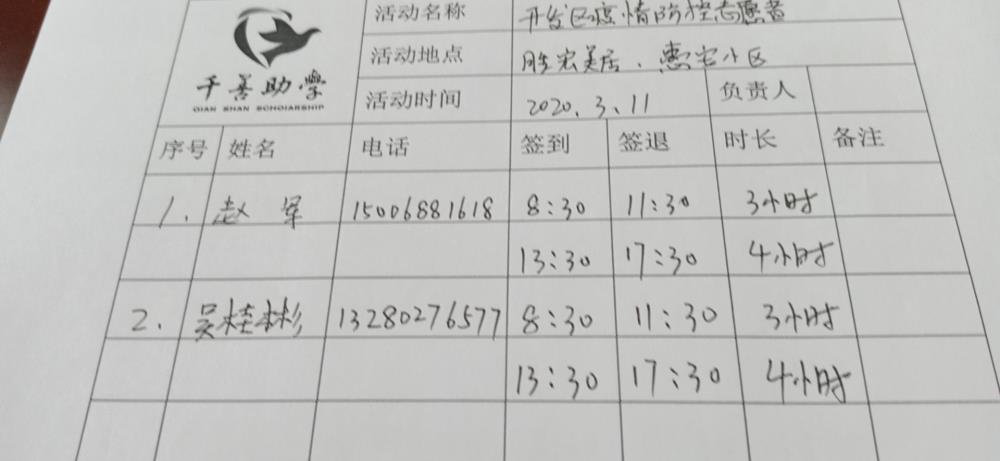 活动名称 开发区疫情防控志愿者
千善助學
QIAN SHAN SCHOLARSHIP
活动地点 胜宏美居、惠宏小区
活动时间 2020.3.11 负责人
序号 姓名 电话 签到 签退 时长 备注
1. 赵军 15006881618 8:30 11:30 3小时
13:30 17:30 4小时
2. 吴桂彬 13280276577 8:30 11:30 3小时
13:30 17:30 4小时